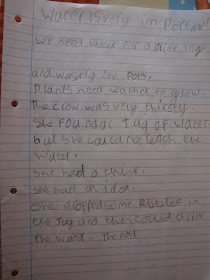 Water is very importent
we need water for a drinking
and washing the Pots.
Plants need water to grow.
The crow was very thirsty
She found a Jug of water
but she could not retch the
water.
She had a think.
She had an idea.
She dropped some Pebbles in
the Jug and then could drink
The water. The end.